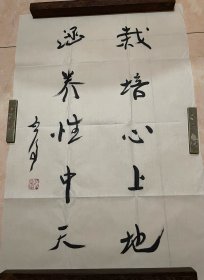 栽培心上地
涵养性中天